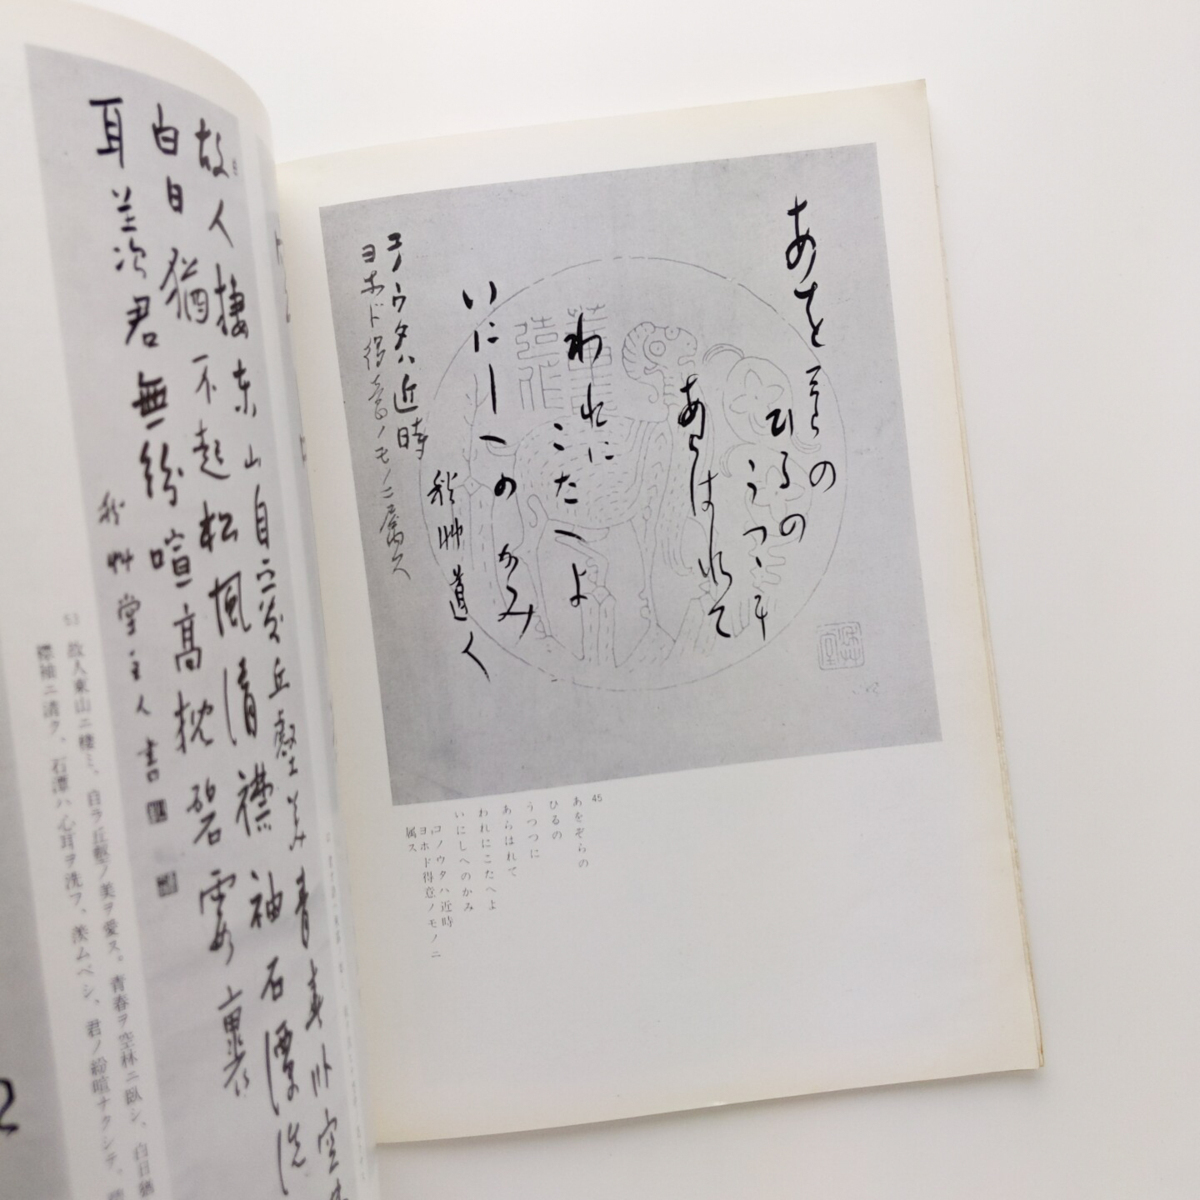 あをぞらの
ひるの
うつつに
あらはれて
われに
こたへよ
いにしへのかみ
秋艸道人
コノウタハ近時
ヨホド得意ノモノニ属ス
45
あをぞらの
ひるの
うつつに
あらはれて
われにこたへよ
いにしへのかみ
コノウタハ近時
ヨホド得意ノモノニ
属ス
故人棲東山自愛丘壑美青春臥空
白日猶不起松風清襟袖石潭洗
耳羨君無紛喧高枕碧霞裏
秋艸堂主人書
53
故人東山ニ棲ミ、自ラ丘壑ノ美ヲ愛ス。青春ヲ空林ニ臥シ、白日猶
襟袖ニ清ク、石潭ハ心耳ヲ洗フ、羨ムベシ、君ノ紛喧ナクシテ、